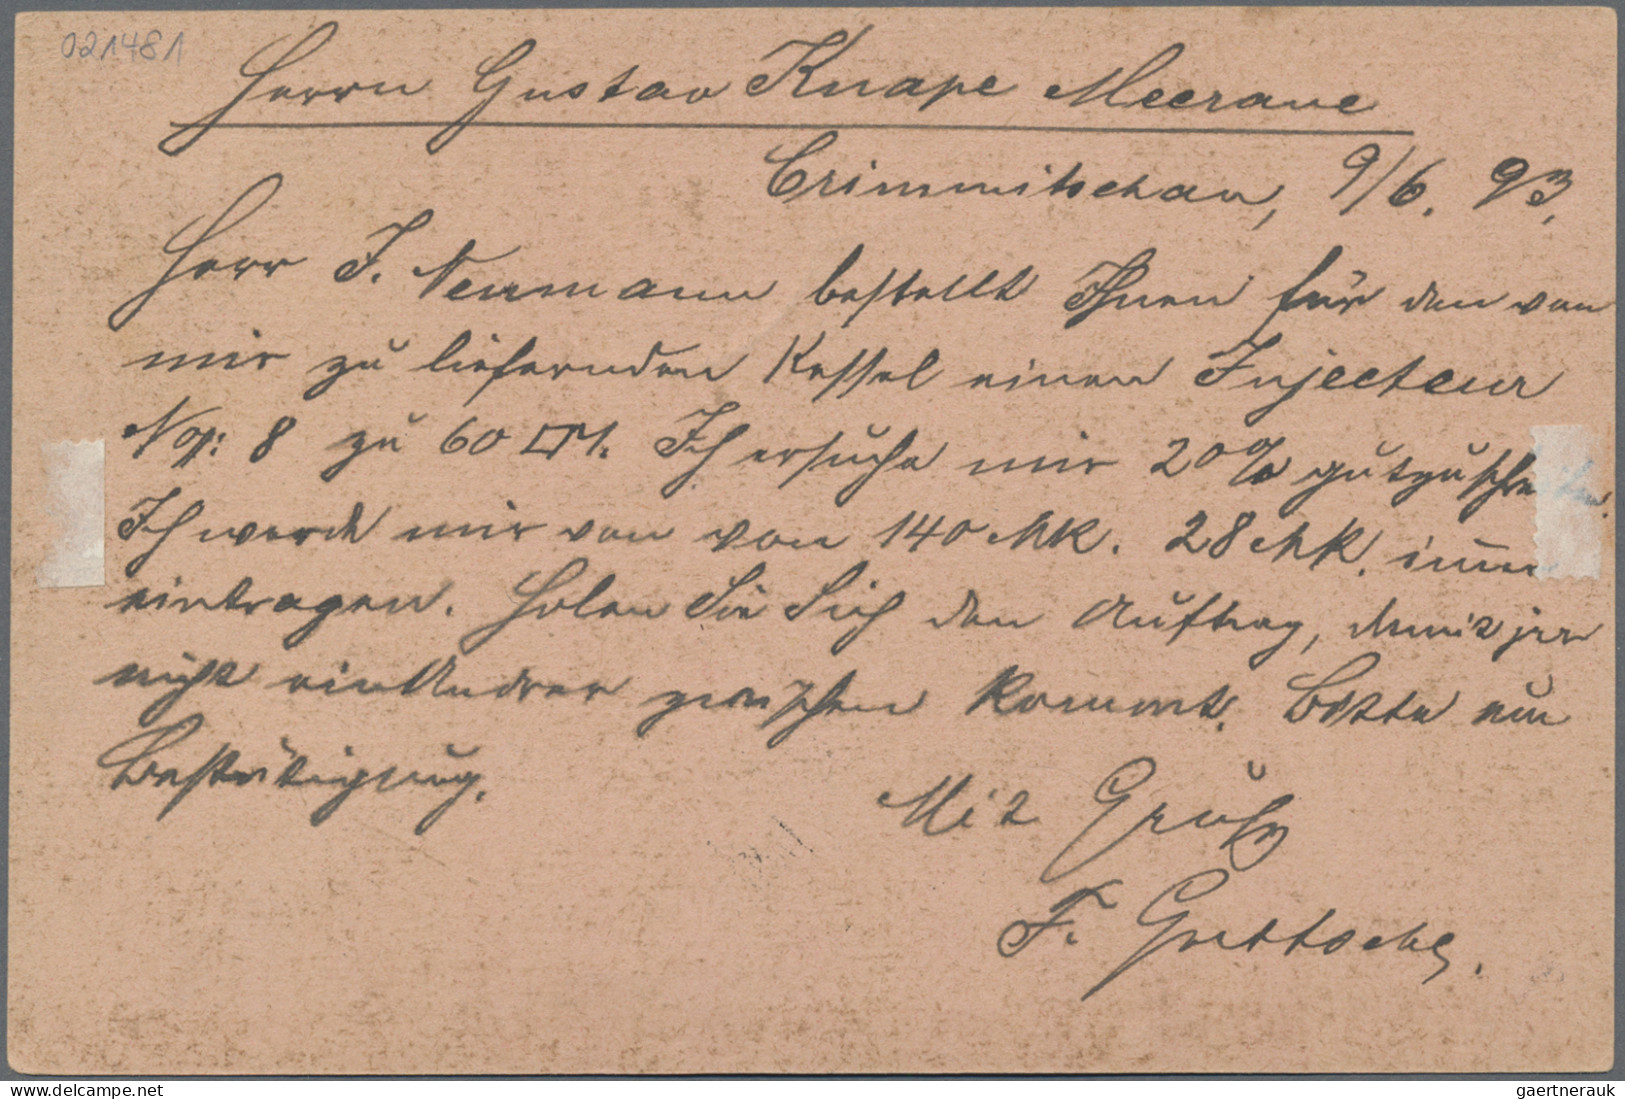 021481
Herrn Gustav Knape Meerane
Crimmitschau, 9/6. 93.
Herr J. Neumann bestellt Ihnen für den von
mir zu liefernden Kessel einen Injecteur
No: 8 zu 60 □M. Ich ersuche mir 20% gutzuschr
Ich werde mir von von 140 Mk. 28 Mk.
eintragen. Holen Sie Sich den Auftrag, damit ja
nicht ein Anderer zwischen kommt. Bitte um
Bestätigung.
Mit Gruß
F.
www.delcampe.net
gaertnerauk